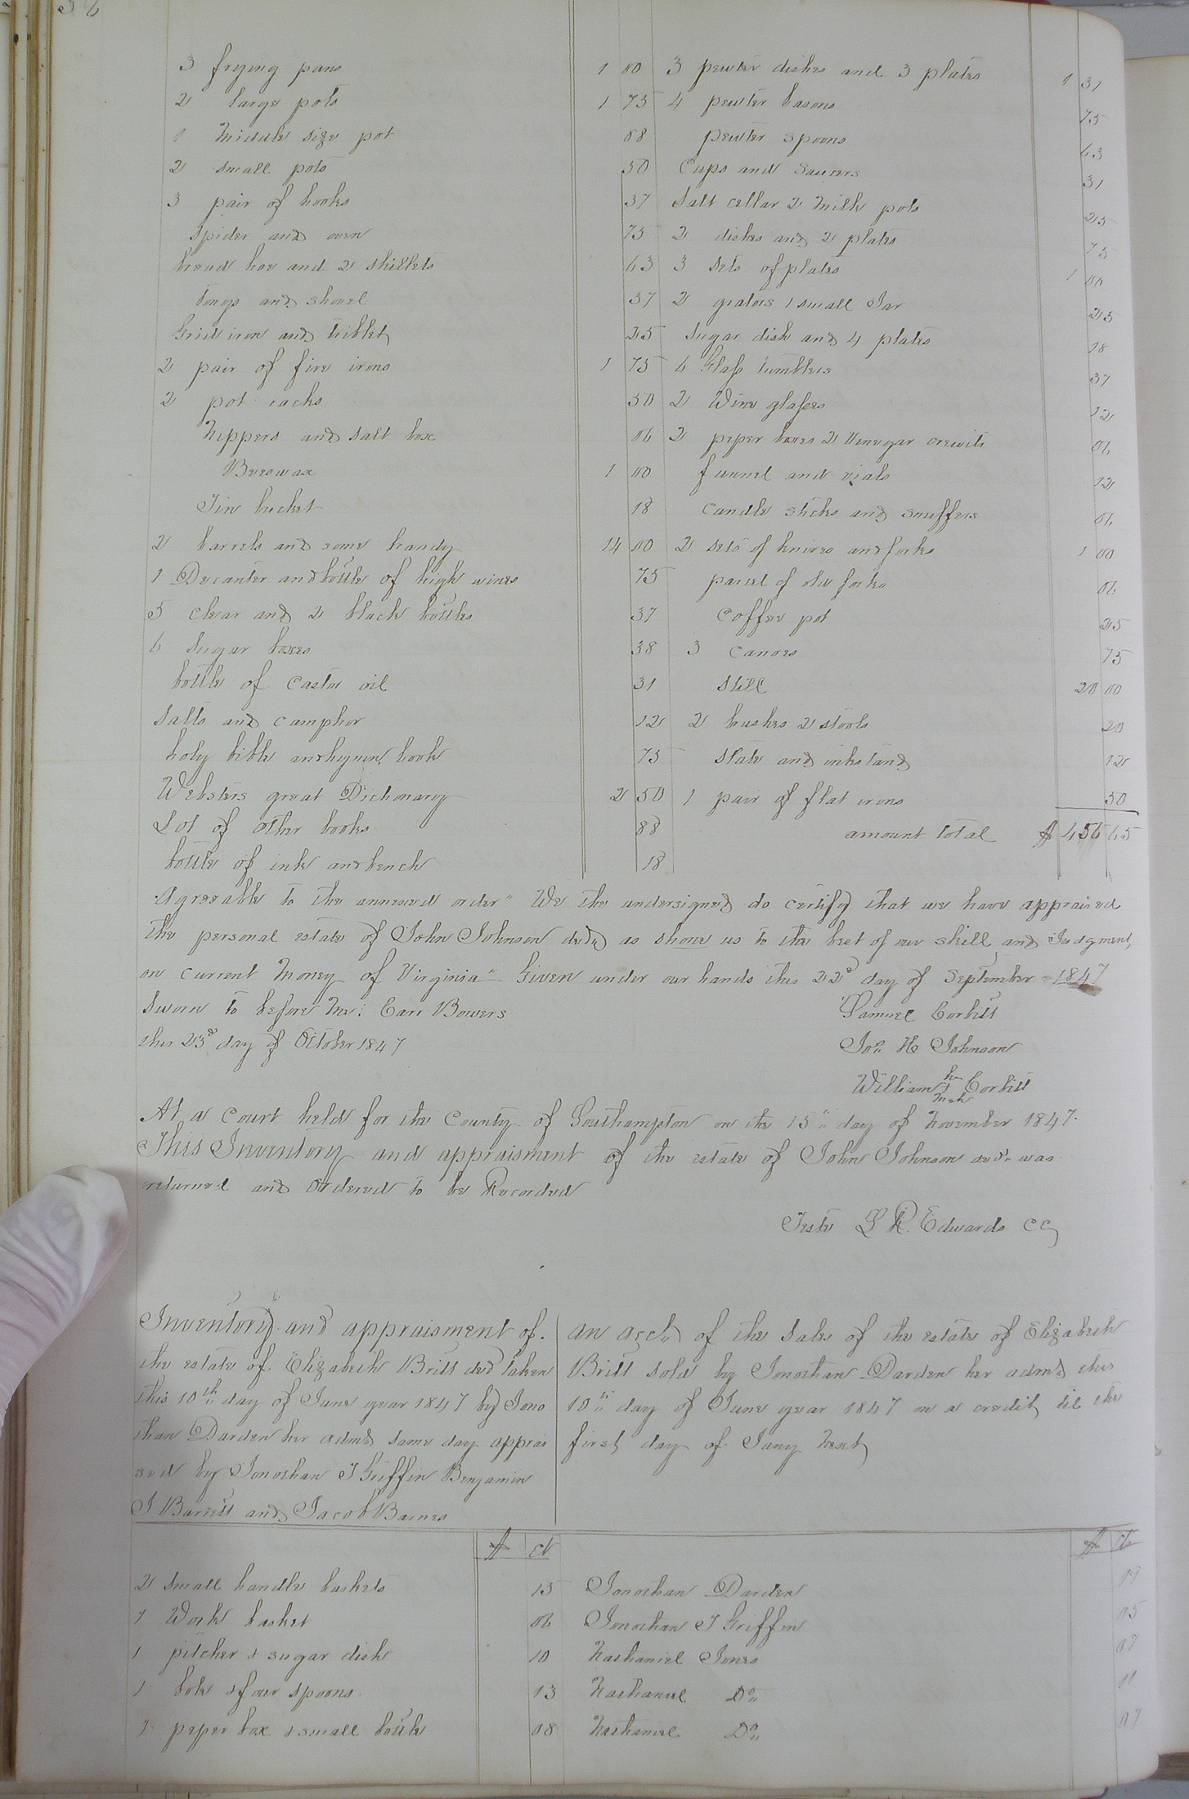 3 frying pans 1 00 3 pewter dishes and 3 plates 1 31
2 large pots 1 75 4 pewter basons 75
1 Middle size pot 88 pewter spoons 63
2 small pots 50 Cups and saucers 31
3 pair of hooks 37 Salt cellar 2 Milk pots 25
Spider and oven 75 2 dishes and 2 plates 75
bread hoe and 2 skillets 63 3 sets of plates 1 00
tongs and shovel 37 2 graters 1 small Jar 25
Grid iron and 25 Sugar dish and 4 plates 18
2 pair of fire irons 1 75 6 Glass tumblers 37
2 pot racks 50 2 Wine glasses 12
Nippers and salt box 06 2 peper boxes 2 Vinegar crewits 06
Beeswax 1 00 funnel and vials 12
Tin bucket 18 candle sticks and snuffers 06
2 barrels and some brandy 14 00 2 sets of knives and forks 1 00
1 Decanter and bottle of high wines 75 parcel of old forks 06
5 clear and 2 black bottles 37 Coffee pot 25
6 Sugar boxes 38 3 Canoes 75
bottle of Castor oil 31 Still 20 00
Salts and camphor 12 2 bushes 2 stools 20
holy bible and hymn book 75 Slate and inkstand 12
Websters great Dictionary 2 50 1 pair of flat irons 50
Lot of other books 88 amount total $ 456 65
bottle of ink and bench 18
Agreeable to the annexed order" We the undersigned do certify that we have appraised
the personal estate of John Johnson decd as shown us to the best of our skill and Judgment,
on current Money of Virginia" Given under our hands this 22d day of September 1847
Sworn to before Me: Carr Bowers Samuel Corbitt
this 23d day of October 1847 Jno. H Johnson
William his + mark Corbitt
At a Court held for the County of Southampton on the 15th day of November 1847.
This Inventory and appraisment of the estate of John Johnson decd. was
returned and Ordered to be Recorded
Teste L R. Edwards CC
Inventory and appraisment of
the estate of Elizabeth Britt decd taken
this 10th day of June year 1847 by Jona
than Darden her admr same day apprai
sed by Jonathan T Griffin Benjamin
J Barrett and Jacob Barnes
An acct of the Sales of the estate of Elizabeth
Britt sold by Jonathan Darden her admr this
10th day of June year 1847 on a credit til the
first day of Jany Next
$ ct $ cts
2 small handle baskets 15 Jonathan Darden 19
1 Work basket 06 Jonathan T Griffin 05
1 pitcher & sugar dish 10 Nathaniel Jones 07
1 bole & four spoons 13 Nathaniel Do 11
1 peper box & small bottle 08 Nathaniel Do 07